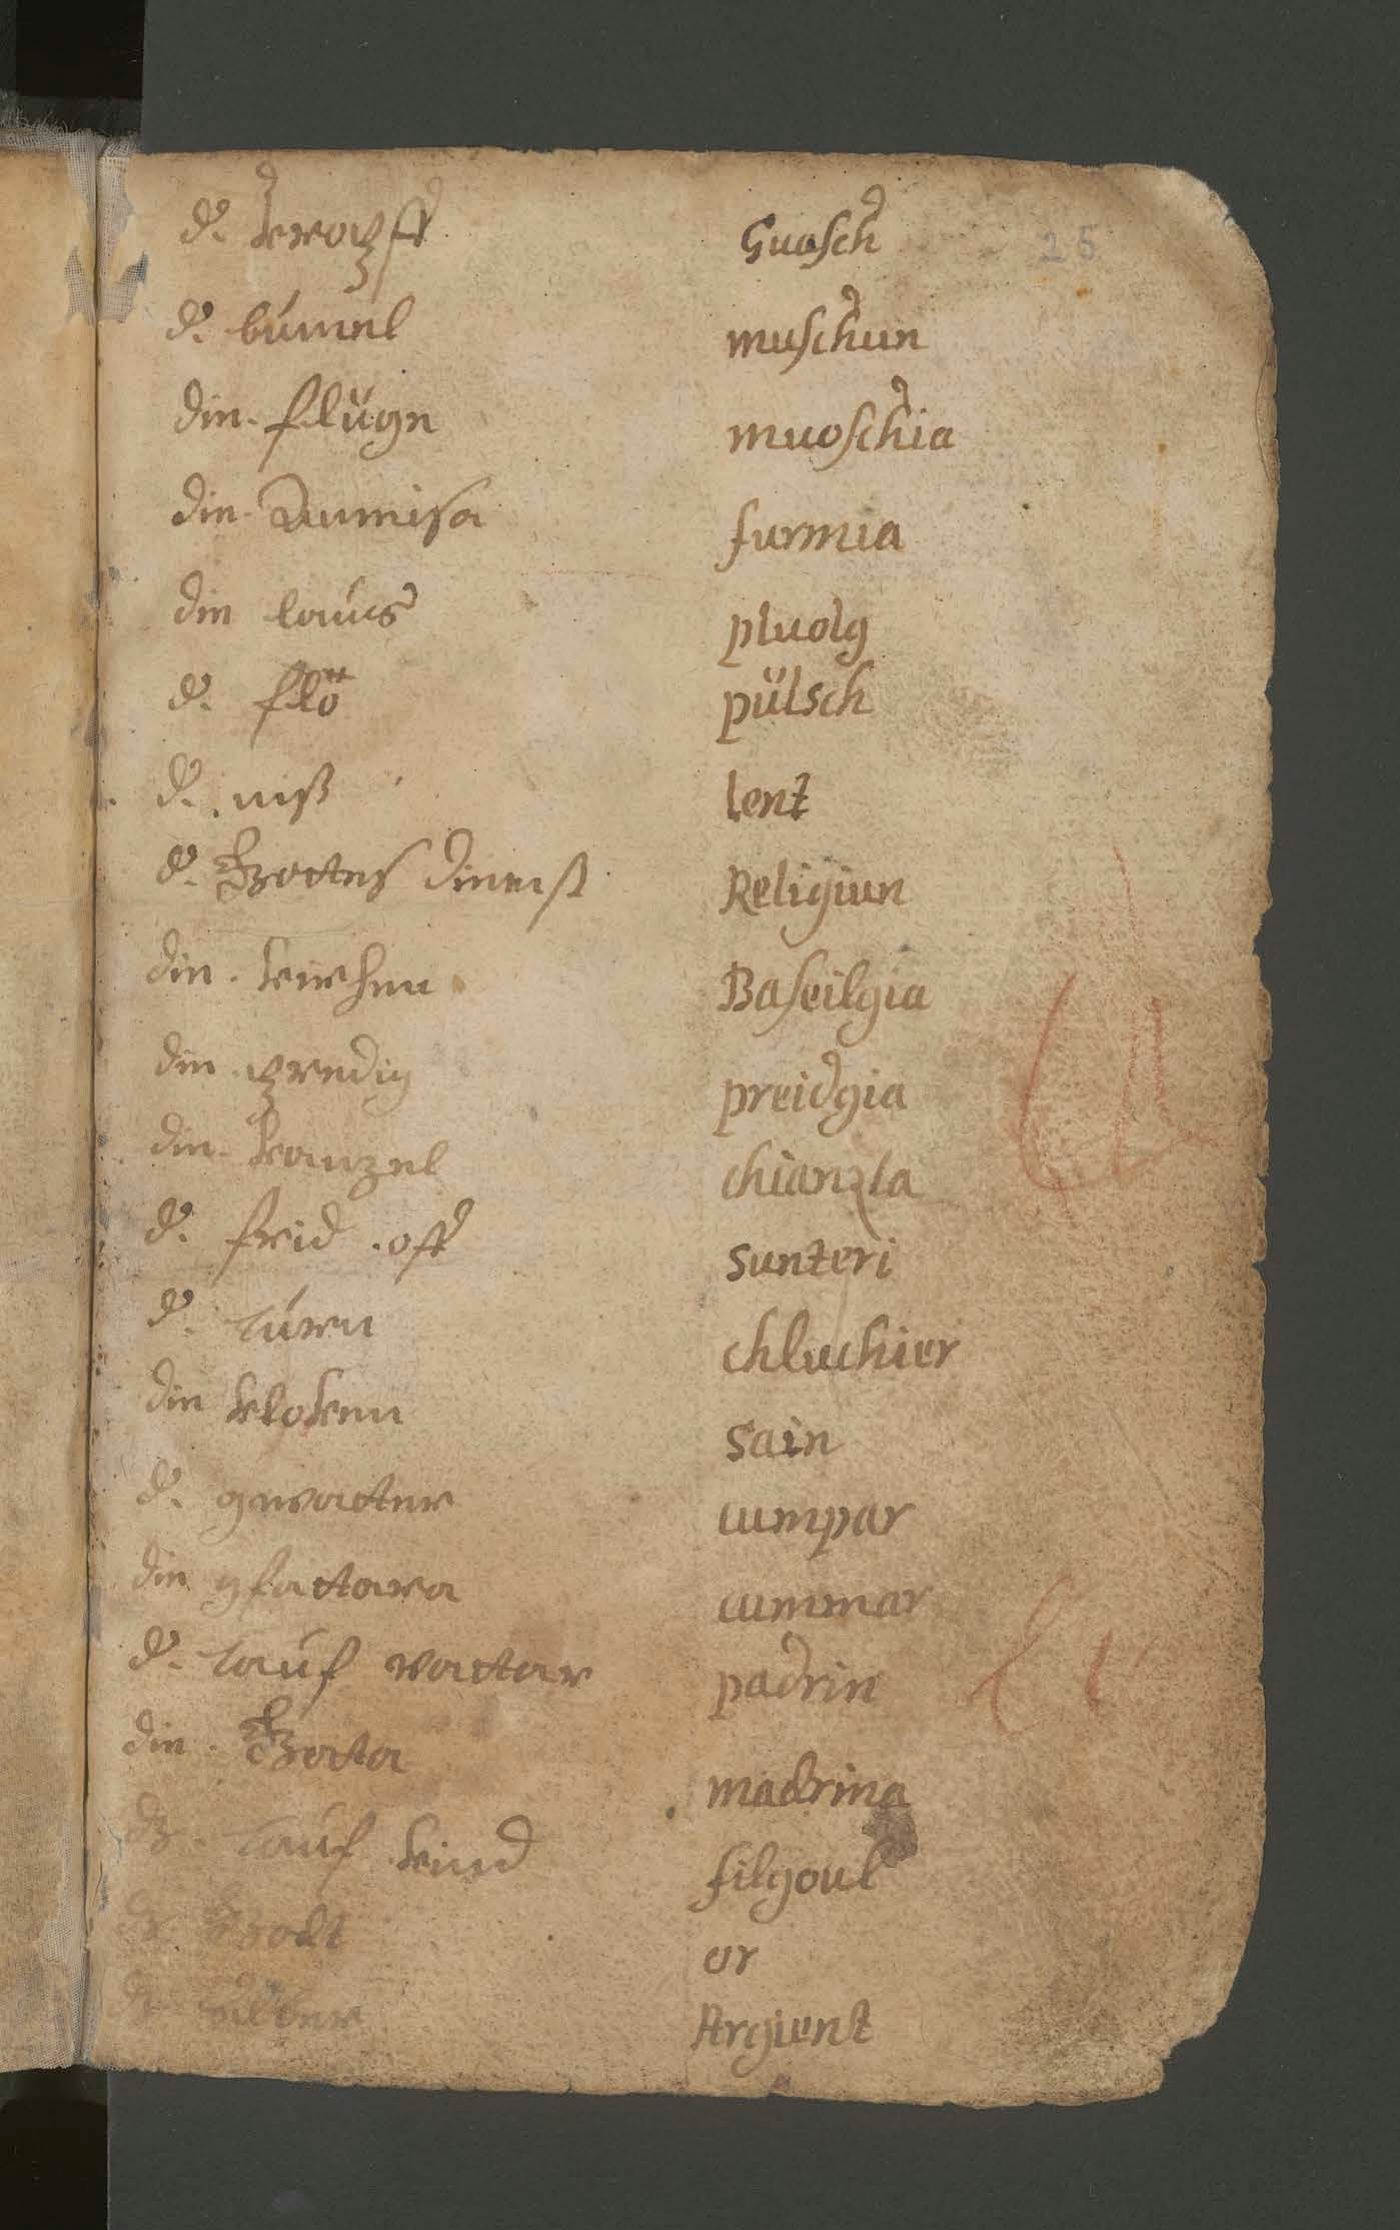 25
d. kropff Guosch
d. bumel muschun
die. flüge muoschia
die. Aumisa furmia
die laus pluolg
d. flö pülsch
d. niß lent
d. Gottes dienist Religiun
die. kirchen Baseilgia
die. predig preidgia
die. kanzel chianzla
d. frid .off sunteri
d. turn chluchier
die kloken sain
d. gevatter cumpar
die gfattara cummar
d. tauf vattar padrin
die. Gotta madrina
dz. tauf kind filgoul
dz Goldt or
dz silber Argient